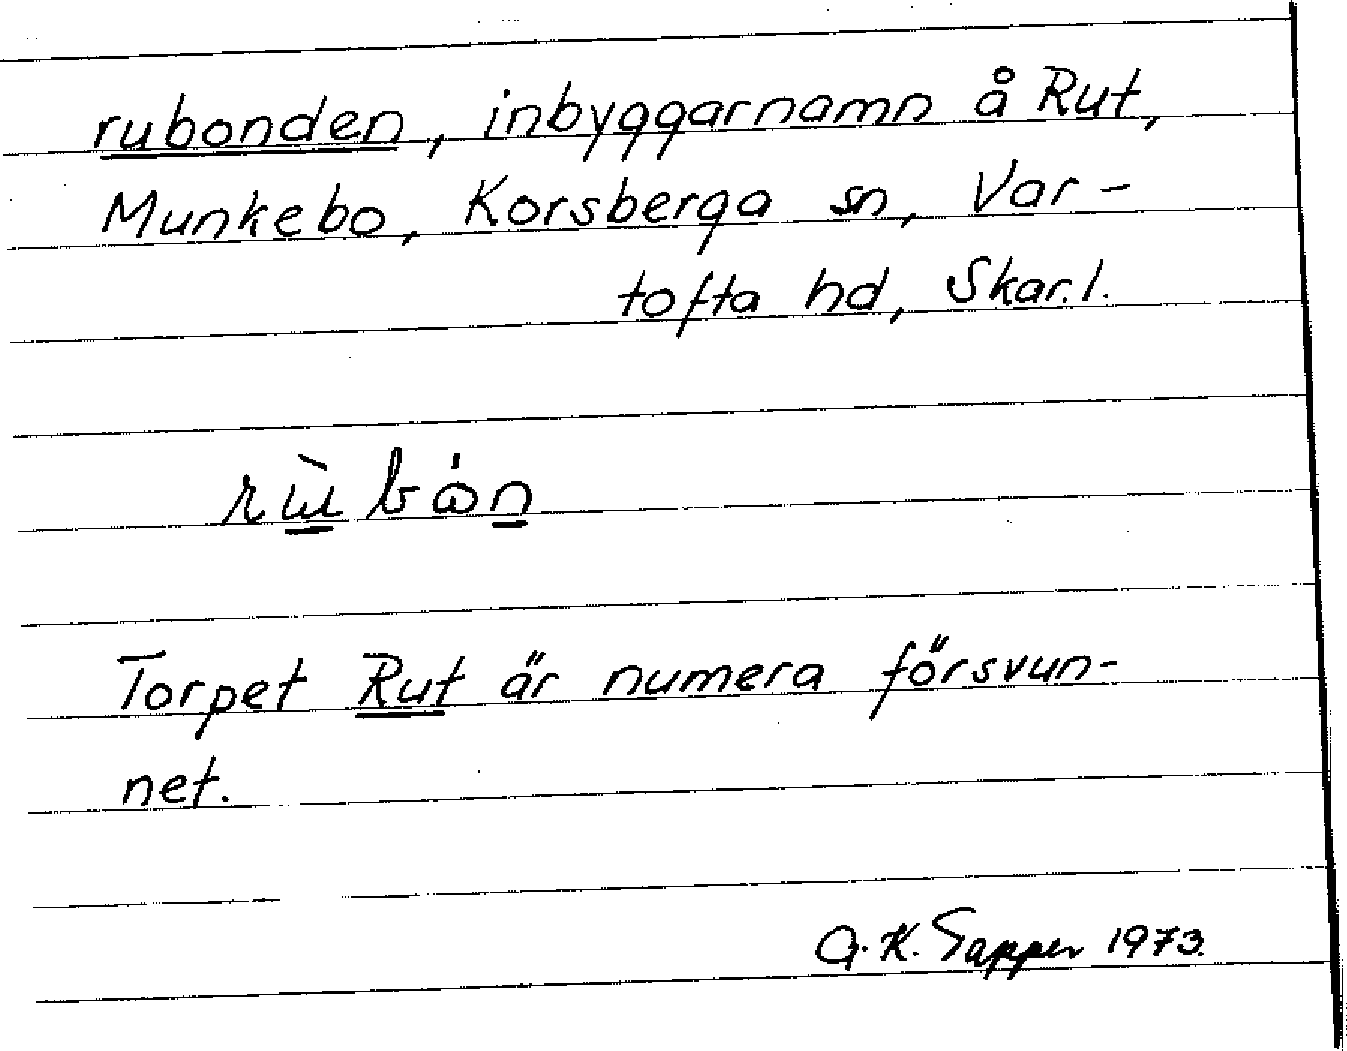 rubonden, inbyggarnamn å Rut,
Munkebo, Korsberga sn, Var-
tofta hd, Skar.l.
Torpet Rut är numera försvun-
net.
A.K. Sapper 1973.